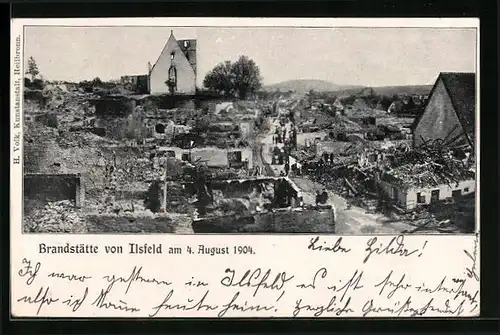 H. Volk, Kunstanstalt, Heilbronn.
Brandstätte von Ilsfeld am 4. August 1904.
Liebe Hilda!
Ich war gestern in Ilsfeld, es ist sehr interessant
also ich
heute heim. Herzliche Grüße